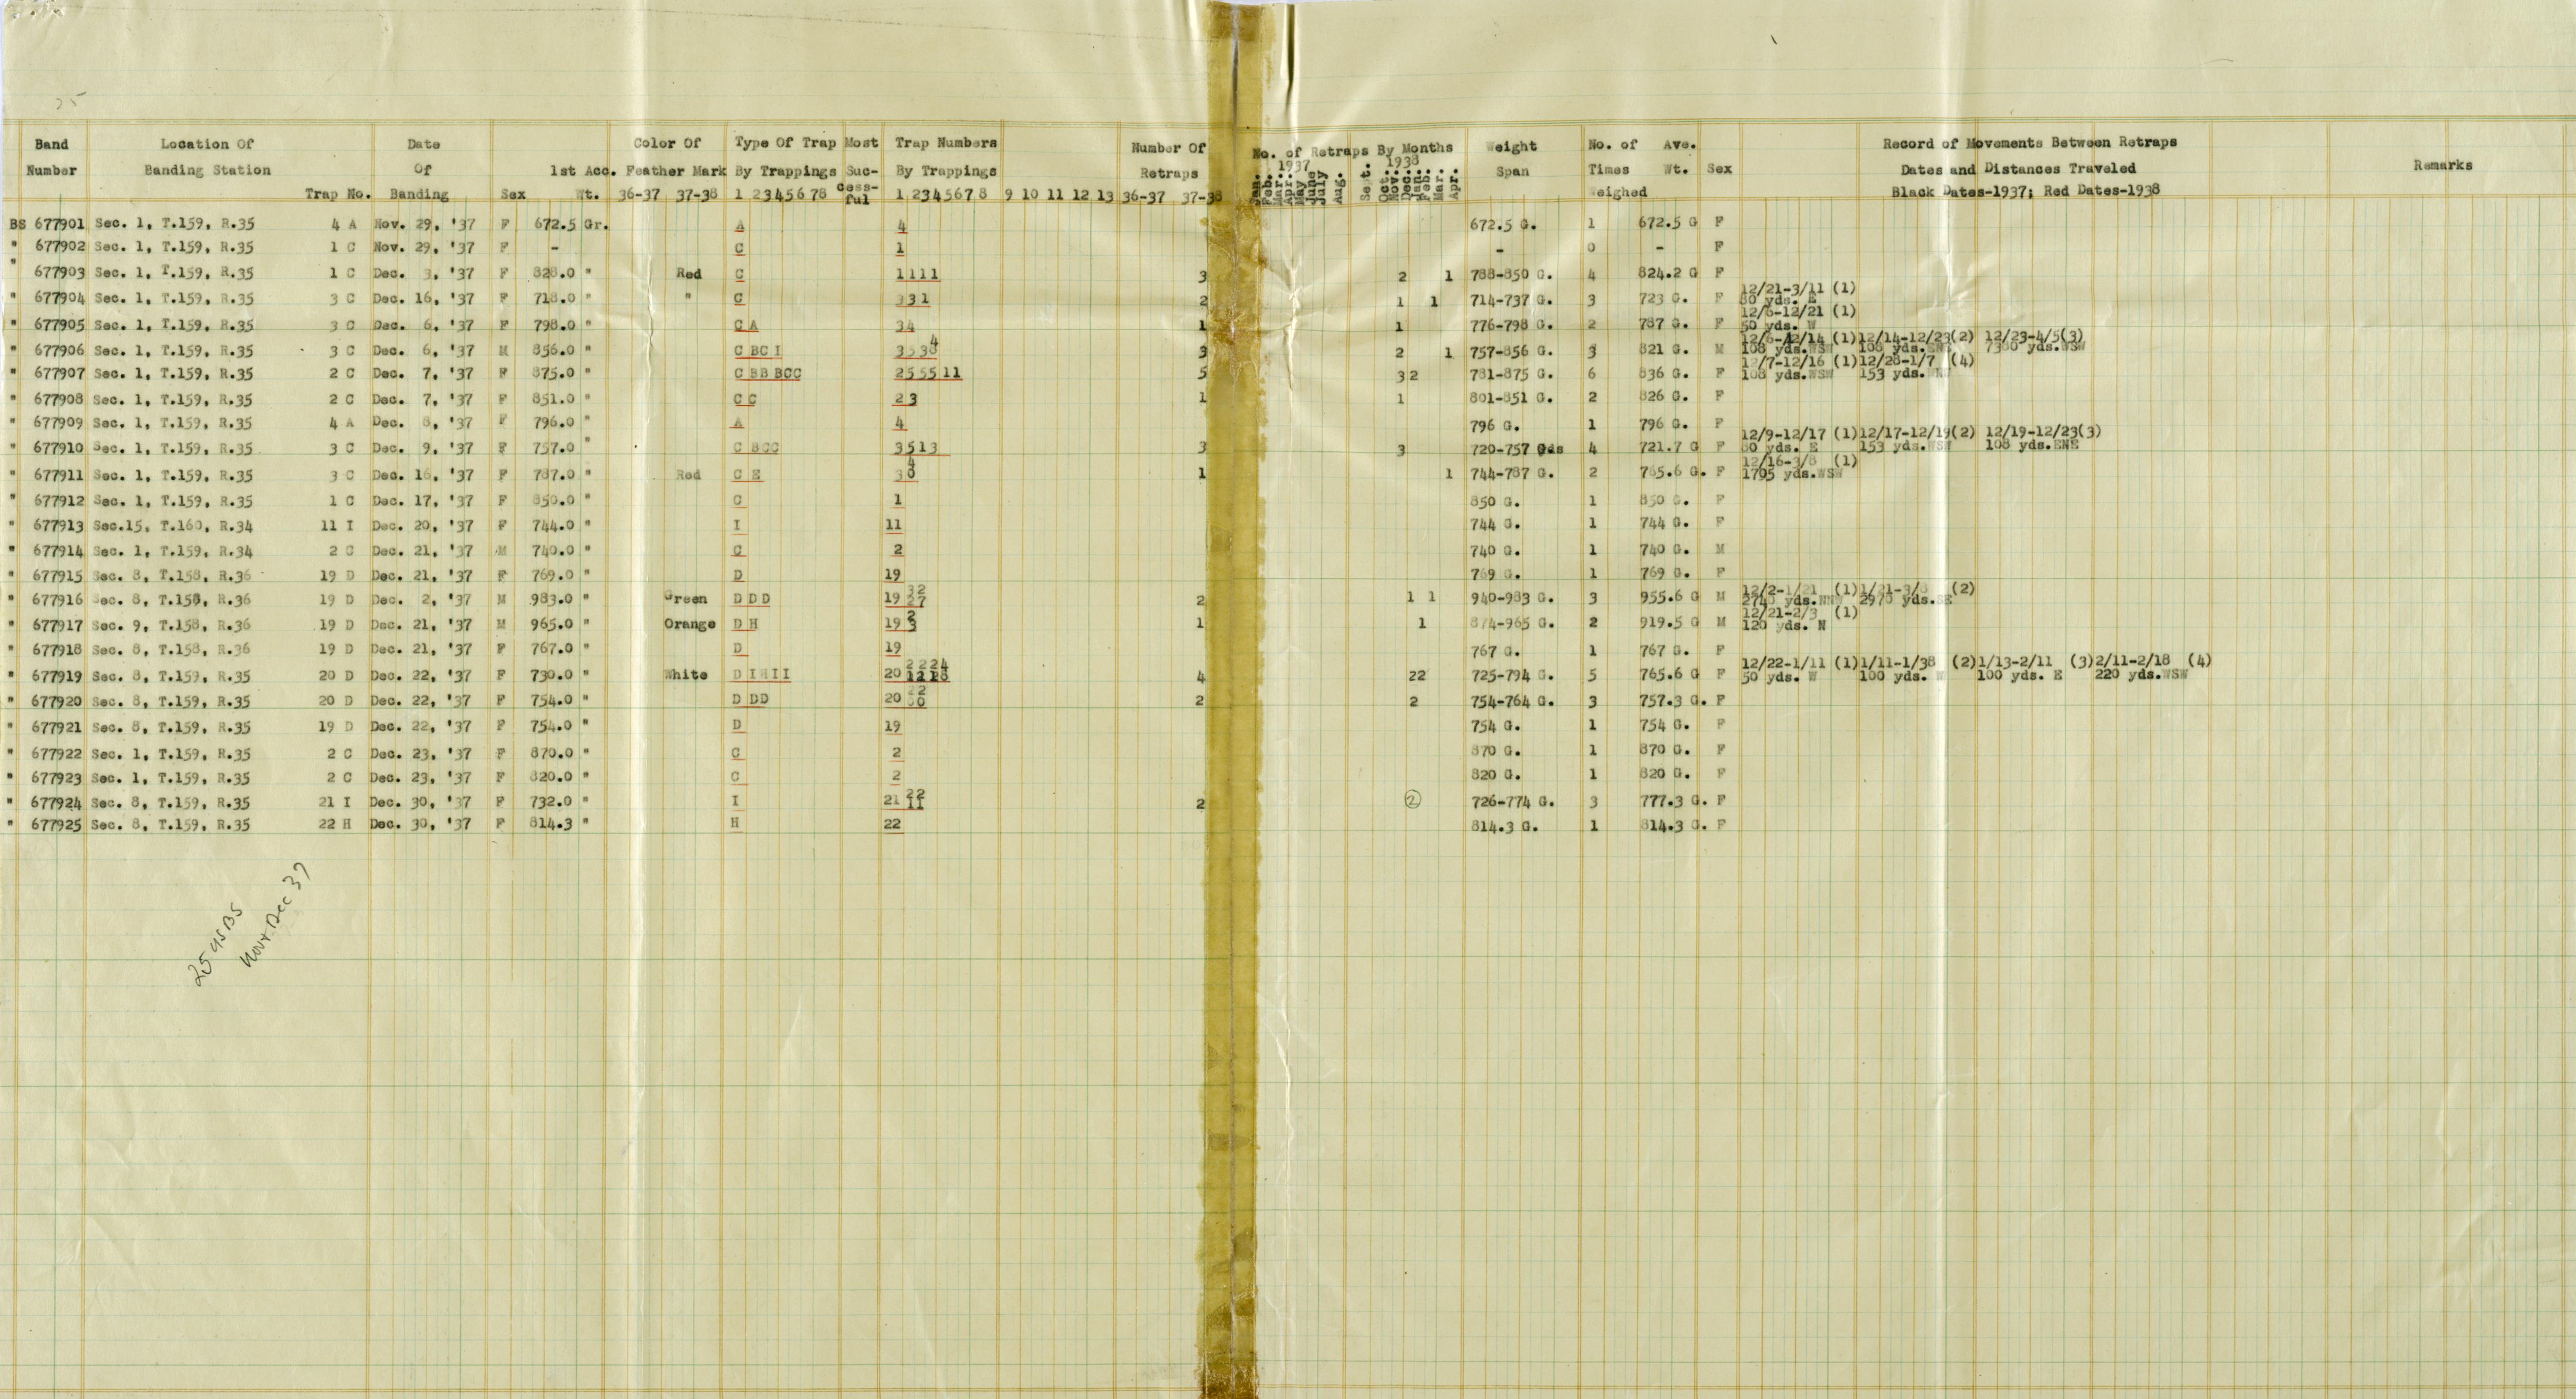 25
Band Location Of Date Color Of Type Of Trap Most Trap Numbers Number Of No. of Retraps By Months Weight No. of Ave. Record of Movements Between Retraps
Number Banding Station Of 1st Acc. Feather Mark By Trappings Suc- By Trappings Retraps 1937 1938 Span Times Wt. Sex Dates and Distances Traveled Remarks
Trap No. Banding Sex Wt. 36-37 37-38 1 2 3 4 5 6 7 8 cess-ful 1 2 3 4 5 6 7 8 9 10 11 12 13 36-37 37-38 Jan. Feb. Mar. Apr. May June July Aug. Sept. Oct. Nov. Dec. Jan. Feb. Mar. Apr. Weighed Black Dates-1937; Red Dates-1938
BS 677901 Sec. 1, T.159, R.35 4 A Nov. 29, '37 F 672.5 Gr. A 4 672.5 G. 1 672.5 G F
" 677902 Sec. 1, T.159, R.35 1 C Nov. 29, '37 F - C 1 - 0 - F
" 677903 Sec. 1, T.159, R.35 1 C Dec. 3, '37 F 828.0 " Red C 1111 3 2 1 788-850 G. 4 824.2 G F
" 677904 Sec. 1, T.159, R.35 3 C Dec. 16, '37 F 718.0 " " C 331 2 1 1 714-737 G. 3 723 G. F 12/21-3/11 (1)
80 yds. E
" 677905 Sec. 1, T.159, R.35 3 C Dec. 6, '37 F 798.0 " C A 34 1 1 776-798 G. 2 787 G. F 12/6-12/21 (1)
50 yds. W
" 677906 Sec. 1, T.159, R.35 3 C Dec. 6, '37 M 856.0 " C BC I 3538 4 3 2 1 757-856 G. 3 821 G. M 12/6-12/14 (1) 12/14-12/23(2) 12/23-4/5(3)
108 yds.WSW 108 yds.ENE 7380 yds.WSW
" 677907 Sec. 1, T.159, R.35 2 C Dec. 7, '37 F 875.0 " C BB BCC 2555 11 5 3 2 781-875 G. 6 836 G. F 12/7-12/16 (1)12/28-1/7 (4)
108 yds.WSW 153 yds.
" 677908 Sec. 1, T.159, R.35 2 C Dec. 7, '37 F 851.0 " C C 2 3 1 1 801-851 G. 2 826 G. F
" 677909 Sec. 1, T.159, R.35 4 A Dec. 8, '37 F 796.0 " A 4 796 G. 1 796 G. F
" 677910 Sec. 1, T.159, R.35 3 C Dec. 9, '37 F 757.0 " C BCC 3513 3 3 720-757 4 721.7 G F 12/9-12/17 (1)12/17-12/19(2) 12/19-12/23(3)
80 yds. E 153 yds.WSW 108 yds.ENE
" 677911 Sec. 1, T.159, R.35 3 C Dec. 16, '37 F 787.0 " Red C E 3 4 8 1 1 744-787 G. 2 765.6 G. F 12/16-3/8 (1)
1795 yds.WSW
" 677912 Sec. 1, T.159, R.35 1 C Dec. 17, '37 F 850.0 " C 1 850 G. 1 850 G. F
" 677913 Sec.15, T.160, R.34 11 I Dec. 20, '37 F 744.0 " I 11 744 G. 1 744 G. F
" 677914 Sec. 1, T.159, R.34 2 C Dec. 21, '37 M 740.0 " C 2 740 G. 1 740 G. M
" 677915 Sec. 8, T.158, R.36 19 D Dec. 21, '37 F 769.0 " D 19 769 G. 1 769 G. F
" 677916 Sec. 8, T.158, R.36 19 D Dec. 2, '37 M 983.0 " Green D D D 19 32 27 2 1 1 940-983 G. 3 955.6 G M 12/2-1/21 (1)1/21-3/8 (2)
2740 yds.NNW 2970 yds.SE
" 677917 Sec. 9, T.158, R.36 19 D Dec. 21, '37 M 965.0 " Orange D H 19 2 3 1 1 874-965 G. 2 919.5 G M 12/21-2/3 (1)
120 yds. N
" 677918 Sec. 8, T.158, R.36 19 D Dec. 21, '37 F 767.0 " D 19 767 G. 1 767 G. F
" 677919 Sec. 8, T.159, R.35 20 D Dec. 22, '37 F 730.0 " White D I H I I 20 2224 1218 4 22 725-794 G. 5 765.6 G F 12/22-1/11 (1)1/11-1/38 (2)1/13-2/11 (3)2/11-2/18 (4)
50 yds. W 100 yds. W 100 yds. E 220 yds.WSW
" 677920 Sec. 8, T.159, R.35 20 D Dec. 22, '37 F 754.0 " D DD 20 22 00 2 2 754-764 G. 3 757.3 G. F
" 677921 Sec. 8, T.159, R.35 19 D Dec. 22, '37 F 754.0 " D 19 754 G. 1 754 G. F
" 677922 Sec. 1, T.159, R.35 2 C Dec. 23, '37 F 870.0 " C 2 870 G. 1 870 G. F
" 677923 Sec. 1, T.159, R.35 2 C Dec. 23, '37 F 820.0 " C 2 820 G. 1 820 G. F
" 677924 Sec. 8, T.159, R.35 21 I Dec. 30, '37 F 732.0 " I 21 22 11 2 2 726-774 G. 3 777.3 G. F
" 677925 Sec. 8, T.159, R.35 22 H Dec. 30, '37 F 814.3 " H 22 814.3 G. 1 814.3 G. F
25 as BS
Nov + Dec 37